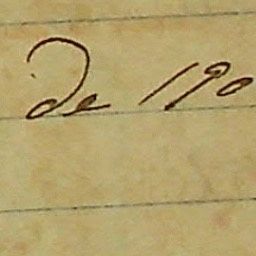 De 190